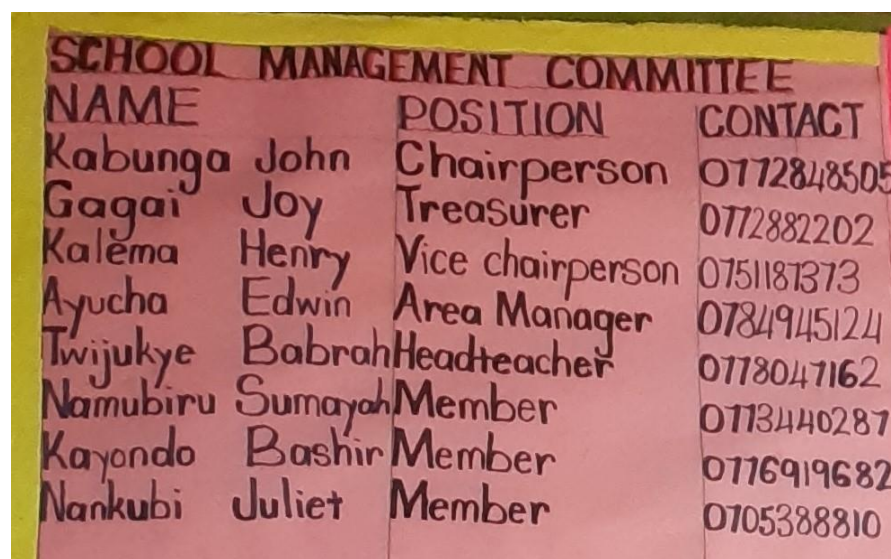 SCHOOL MANAGEMENT COMMITTEE
NAME POSITION CONTACT
Kabunga John Chairperson 0772848505
Gagai Joy Treasurer 0772882202
Kalema Henry Vice chairperson 0751187373
Ayucha Edwin Area Manager 0784945124
Twijukye Babrah Headteacher 0778047162
Namubiru Sumayah Member 0773440287
Kayondo Bashir Member 0776919682
Nankubi Juliet Member 0705388810